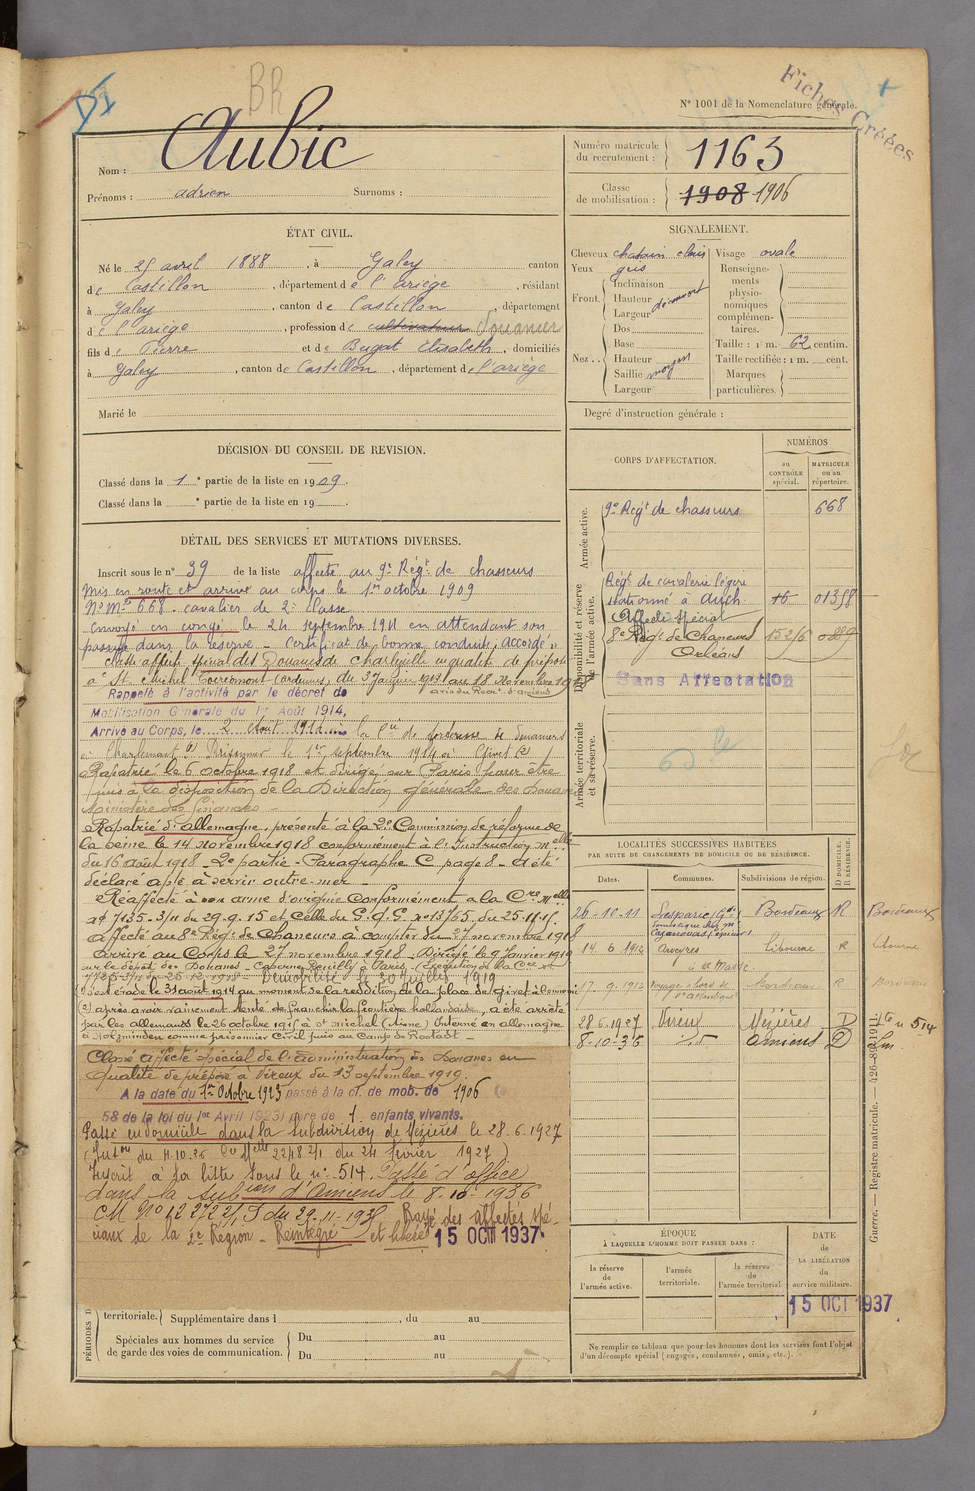 BR
Fiches Créées
N° 1001 de la Nomenclature générale.
Nom : Aubic
Prénoms : adrien Surnoms :
Numéro matricule du recrutement : 1163
Classe de mobilisation : 1908 1906
ÉTAT CIVIL.
Né le 25 avril 1888, à Galey canton
de Castillon, département de l'ariège, résidant
à Galey, canton de Castillon, département
de l'ariège, profession de cultivateur Douanier
fils de Pierre et de Bugat Elisabeth, domiciliés
à Galey, canton de Castillon, département de l'ariège
Marié le
SIGNALEMENT.
Cheveux chatain clairs Visage ovale
Yeux gris
Front. Inclinaison
Hauteur découvert
Largeur
Dos
Nez.. Base
Hauteur moyen
Saillie
Largeur
Renseignements physionomiques complémentaires.
Taille : 1 m. 62 centim.
Taille rectifiée : 1 m. cent.
Marques particulières.
Degré d'instruction générale :
DÉCISION DU CONSEIL DE REVISION.
Classé dans la 1e partie de la liste en 1909.
Classé dans la e partie de la liste en 19 .
CORPS D'AFFECTATION.
NUMÉROS
au CONTRÔLE spécial.
MATRICULE ou au répertoire.
Armée active.
9e Régt de chasseurs 668
Disponibilité et réserve de l'armée active.
Régt de cavalerie légère
stationné à Auch 16 01358
Affecté spécial
8e Régt de Chasseurs
Orléans
Sans Affectation
Armée territoriale et sa réserve.
DÉTAIL DES SERVICES ET MUTATIONS DIVERSES.
Inscrit sous le n° 39 de la liste affecté au 9e Régt de chasseurs
Mis en route et arrivé au corps le 1er octobre 1909
N° Mle 668 - cavalier de 2e classe
Envoyé en congé le 24 septembre 1911 en attendant son
passage dans la réserve - certificat de bonne conduite accordé.
Classé affecté spécial des Douanes de Charleville en qualité de préposé
à St Michel Tournimont (Ardennes) du 3 Janvier 1913 au 18 novembre
avis du Recrt d'Amiens
Rappelé à l'activité par le décret de
Mobilisation Générale du 1er Août 1914,
Arrivé au Corps, le 2 Août 1914 la Cie de forteresse de douaniers
à Charlemont (1) Prisonnier le 1er septembre 1914 à Givet (2)
Rapatrié le 6 octobre 1918 et dirigé sur Paris pour être
mis à la disposition de la Direction générale des Douanes
Ministère des finances -
Rapatrié d'allemagne, présenté à la 2e Commission de réforme de
la Seine le 14 novembre 1918 conformément à l'Instruction Melle
du 16 août 1918 - 2e partie - Paragraphe C page 8 - a été
déclaré apte à servir outre-mer -
Réaffecté à son arme d'origine conformément à la Cre Melle
n° 7135-3/11 du 29.9.15 et celle du G.Q.G. n° 13765 du 25.11.15.
affecté au 8e Régt de Chasseurs à compter du 27 novembre 1918
arrivé au Corps le 27 novembre 1918. Dirigé le 9 Janvier 1919
sur le dépôt des Douanes - Caserne Reuilly à Paris - (Exécution de la Cre
Démobilisé le 29 Juillet 1919
(1) s'est évadé le 31 août 1914 au moment de la reddition de la place de givet
(2) après avoir vainement tenté de franchir la frontière hollandaise, a été arrêté
par les allemands le 26 octobre 1915 à St michel (aisne) Interné en allemagne
à Holzminden comme prisonnier Civil puis au Camp de Rastadt -
Classé affecté Spécial de l'administration des Douanes en
qualité de préposé à Vireux du 13 septembre 1919.
A la date du 1er Octobre 1923 passé à la cl. de mob. de 1906
58 de la loi du 1er Avril 1923) père de 1 enfants vivants.
Passé en Domicile dans la subdivision de Mézières le 28.6.1927
Inscrit à la liste sous le n° 514. Passé d'office
dans la subion d'Amiens le 8-10-1936
Rayé des affectés spéciaux
de la 2e Région - Réintégré et libéré 15 OCT 1937
LOCALITÉS SUCCESSIVES HABITÉES
PAR SUITE DE CHANGEMENTS DE DOMICILE OU DE RÉSIDENCE.
Dates. Communes. Subdivisions de région. D DOMICILE. R RÉSIDENCE.
26-10-11 Lesparre Gde Bordeaux R Bordeaux
14 6 1912 Libourne R Libourne
17 9 1912 Voyage à bord de Bordeaux R Bordeaux
28 6 1927 Vireux Mézières D 16 n 514
8-10-36 Amiens D
Guerre. — Registre matricule. — 426-89-1911.
ÉPOQUE
À LAQUELLE L'HOMME DOIT PASSER DANS :
la réserve de l'armée active.
l'armée territoriale.
la réserve de l'armée territorial
DATE de LA LIBÉRATION du service militaire.
15 OCT 1937
PÉRIODES D
territoriale. Supplémentaire dans l , du au
Spéciales aux hommes du service de garde des voies de communication.
Du au
Du au
Ne remplir ce tableau que pour les hommes dont les services font l'objet
d'un décompte spécial (engagés, condamnés, omis, etc.).